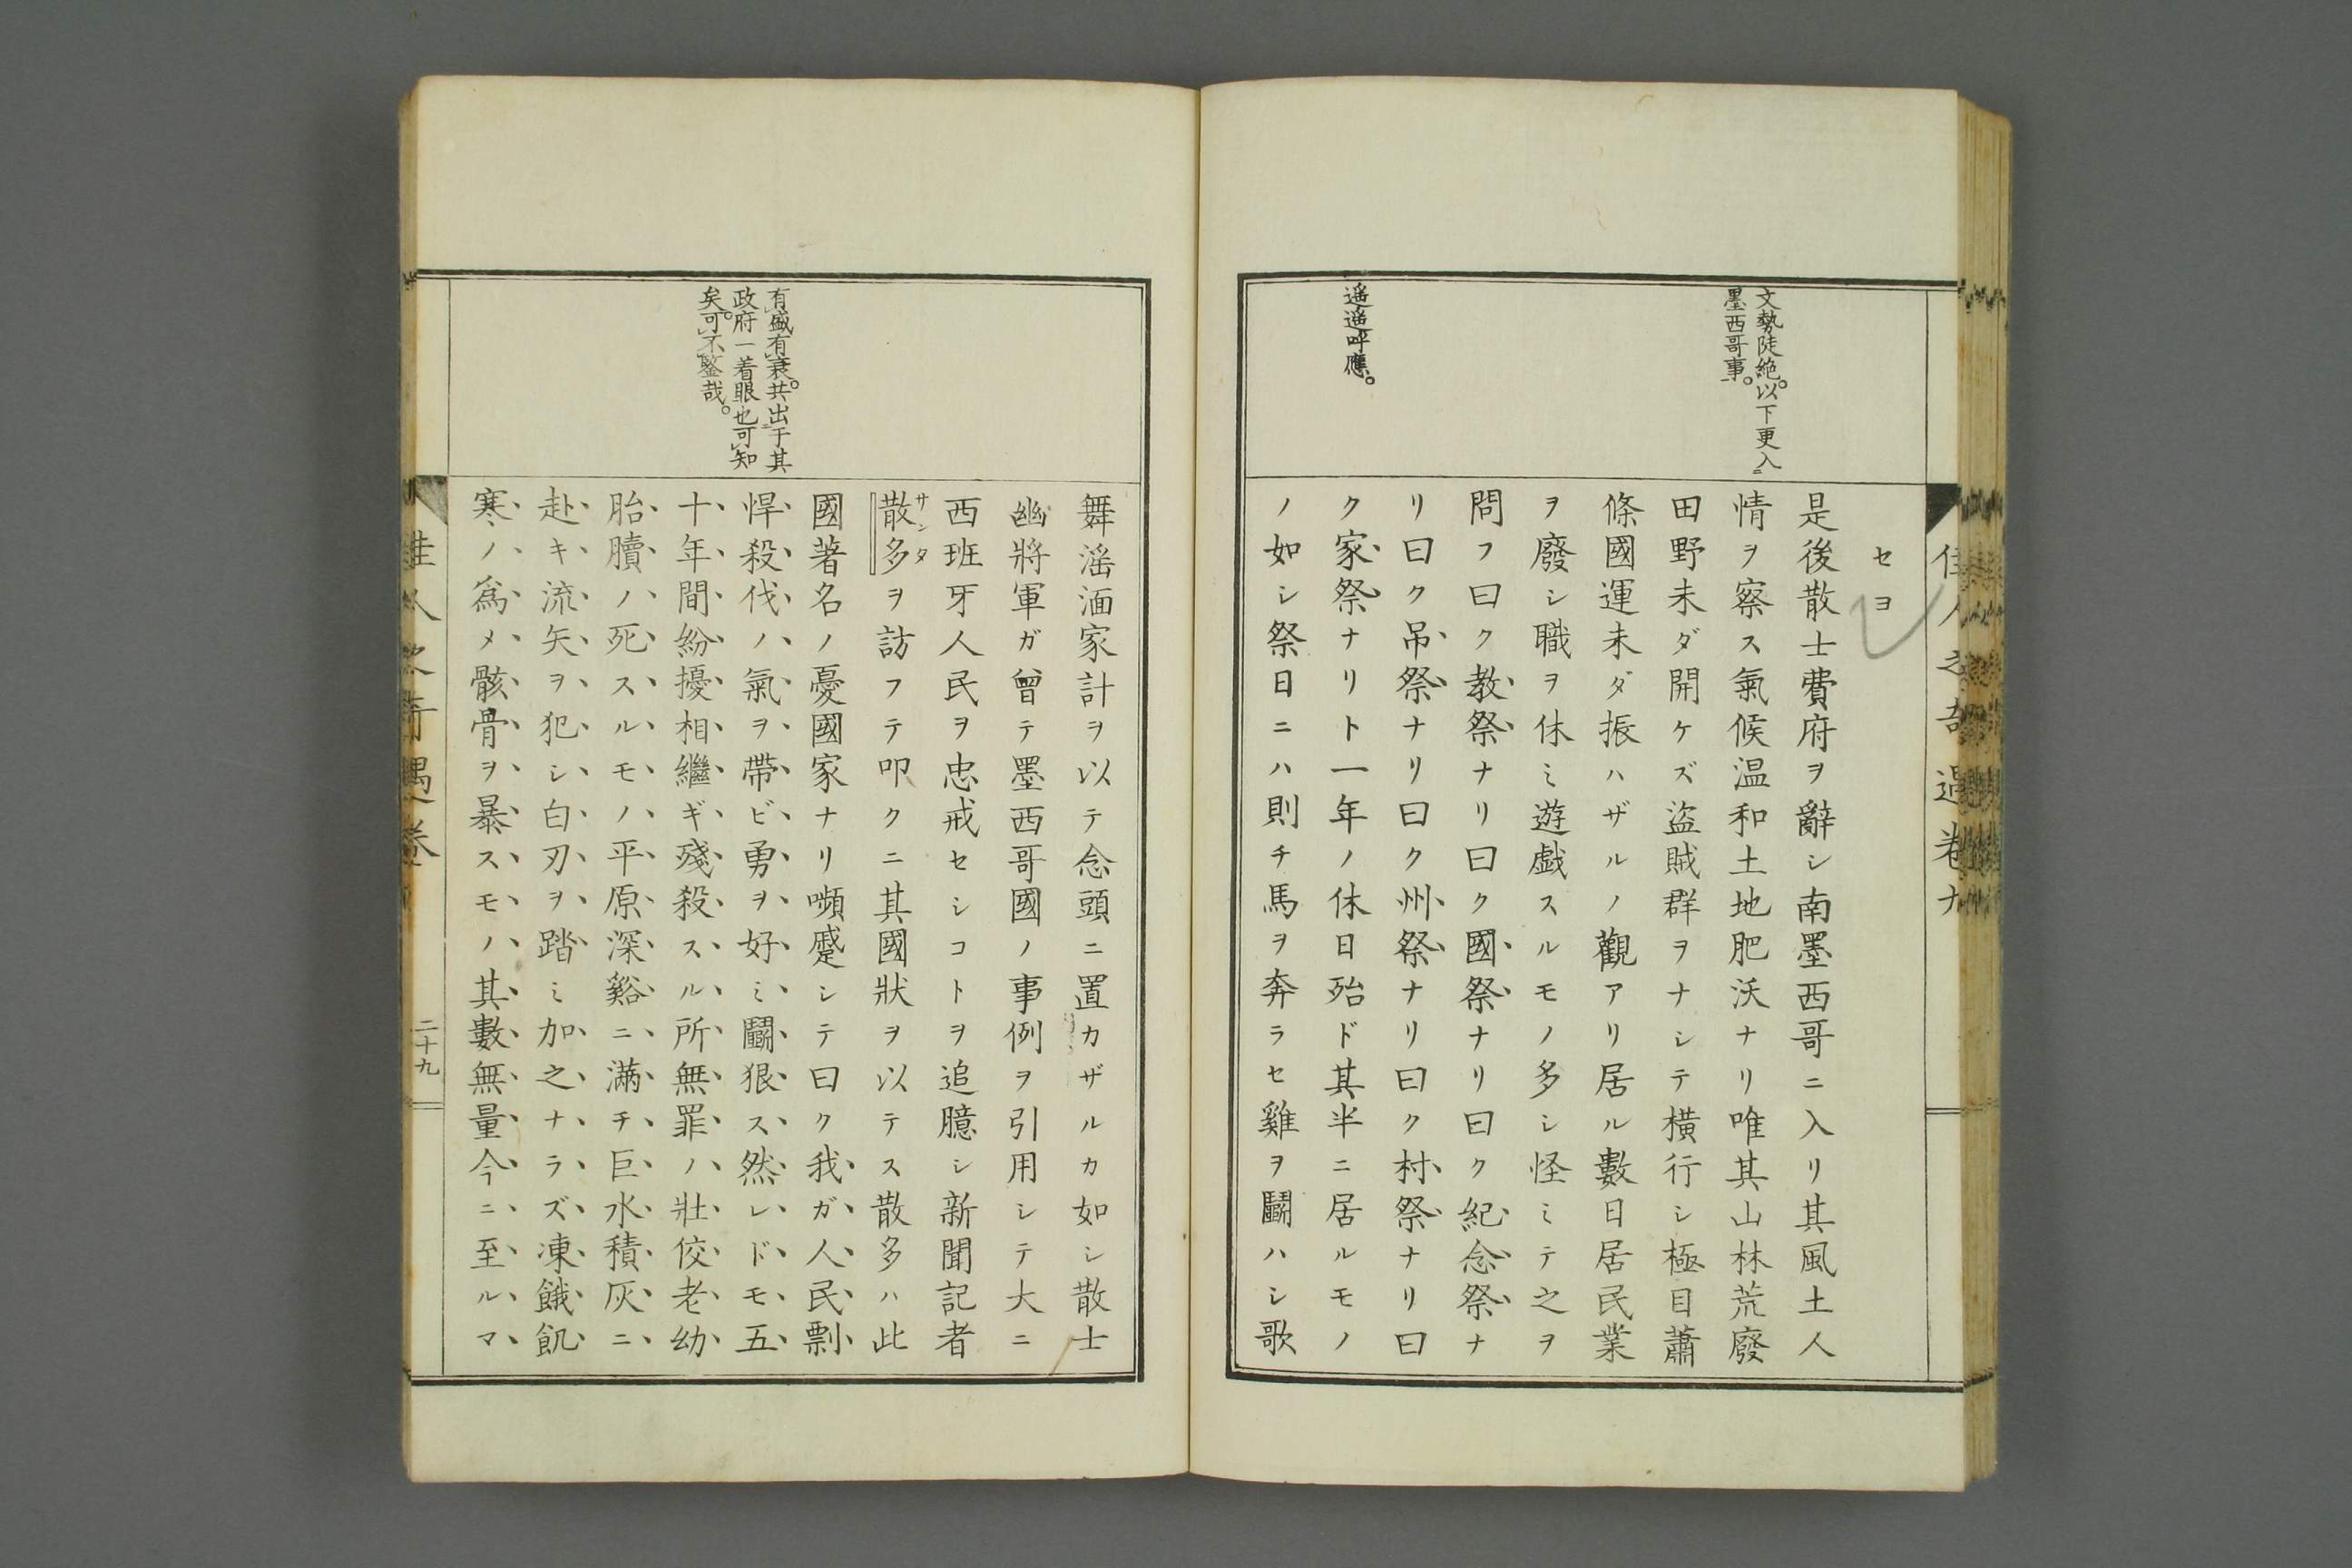 佳人之奇遇卷九
文勢陡絶。以下更入
墨西哥事。
遥遥呼應。
セヨ
是後散士費府ヲ辭シ南墨西哥ニ入リ其風土人
情ヲ察ス氣候温和土地肥沃ナリ唯其山林荒廢
田野未ダ開ケズ盜賊群ヲナシテ横行シ極目蕭
條國運未ダ振ハザルノ觀アリ居ル數日居民業
ヲ廢シ職ヲ休ミ遊戯スルモノ多シ怪ミテ之ヲ
問フ曰ク教祭ナリ曰ク國祭ナリ曰ク紀念祭ナ
リ曰ク吊祭ナリ曰ク州祭ナリ曰ク村祭ナリ曰
ク家祭ナリト一年ノ休日殆ド其半ニ居ルモノ
ノ如シ祭日ニハ則チ馬ヲ奔ラセ雞ヲ鬪ハシ歌
有盛有衰。共出于其
政府一着眼也可知
矣。可不鑒哉。
舞滛湎家計ヲ以テ念頭ニ置カザルカ如シ散士
幽將軍ガ曾テ墨西哥國ノ事例ヲ引用シテ大ニ
西班牙人民ヲ忠戒セシコトヲ追臆シ新聞記者
散多ヲ訪フテ叩クニ其國狀ヲ以テス散多ハ此
サンタ
國著名ノ憂國家ナリ嚬蹙シテ曰ク我ガ人民剽
悍殺伐ノ氣ヲ帶ビ勇ヲ好ミ鬪狠ス然レドモ五
十年間紛擾相繼ギ殘殺スル所無罪ノ壯佼老幼
胎牘ノ死スルモノ平原深谿ニ滿チ巨水積灰ニ
赴キ流矢ヲ犯シ白刃ヲ踏ミ加之ナラズ凍餓飢
寒ノ爲メ骸骨ヲ暴スモノ其數無量今ニ至ルマ
佳人之奇遇卷
二十九